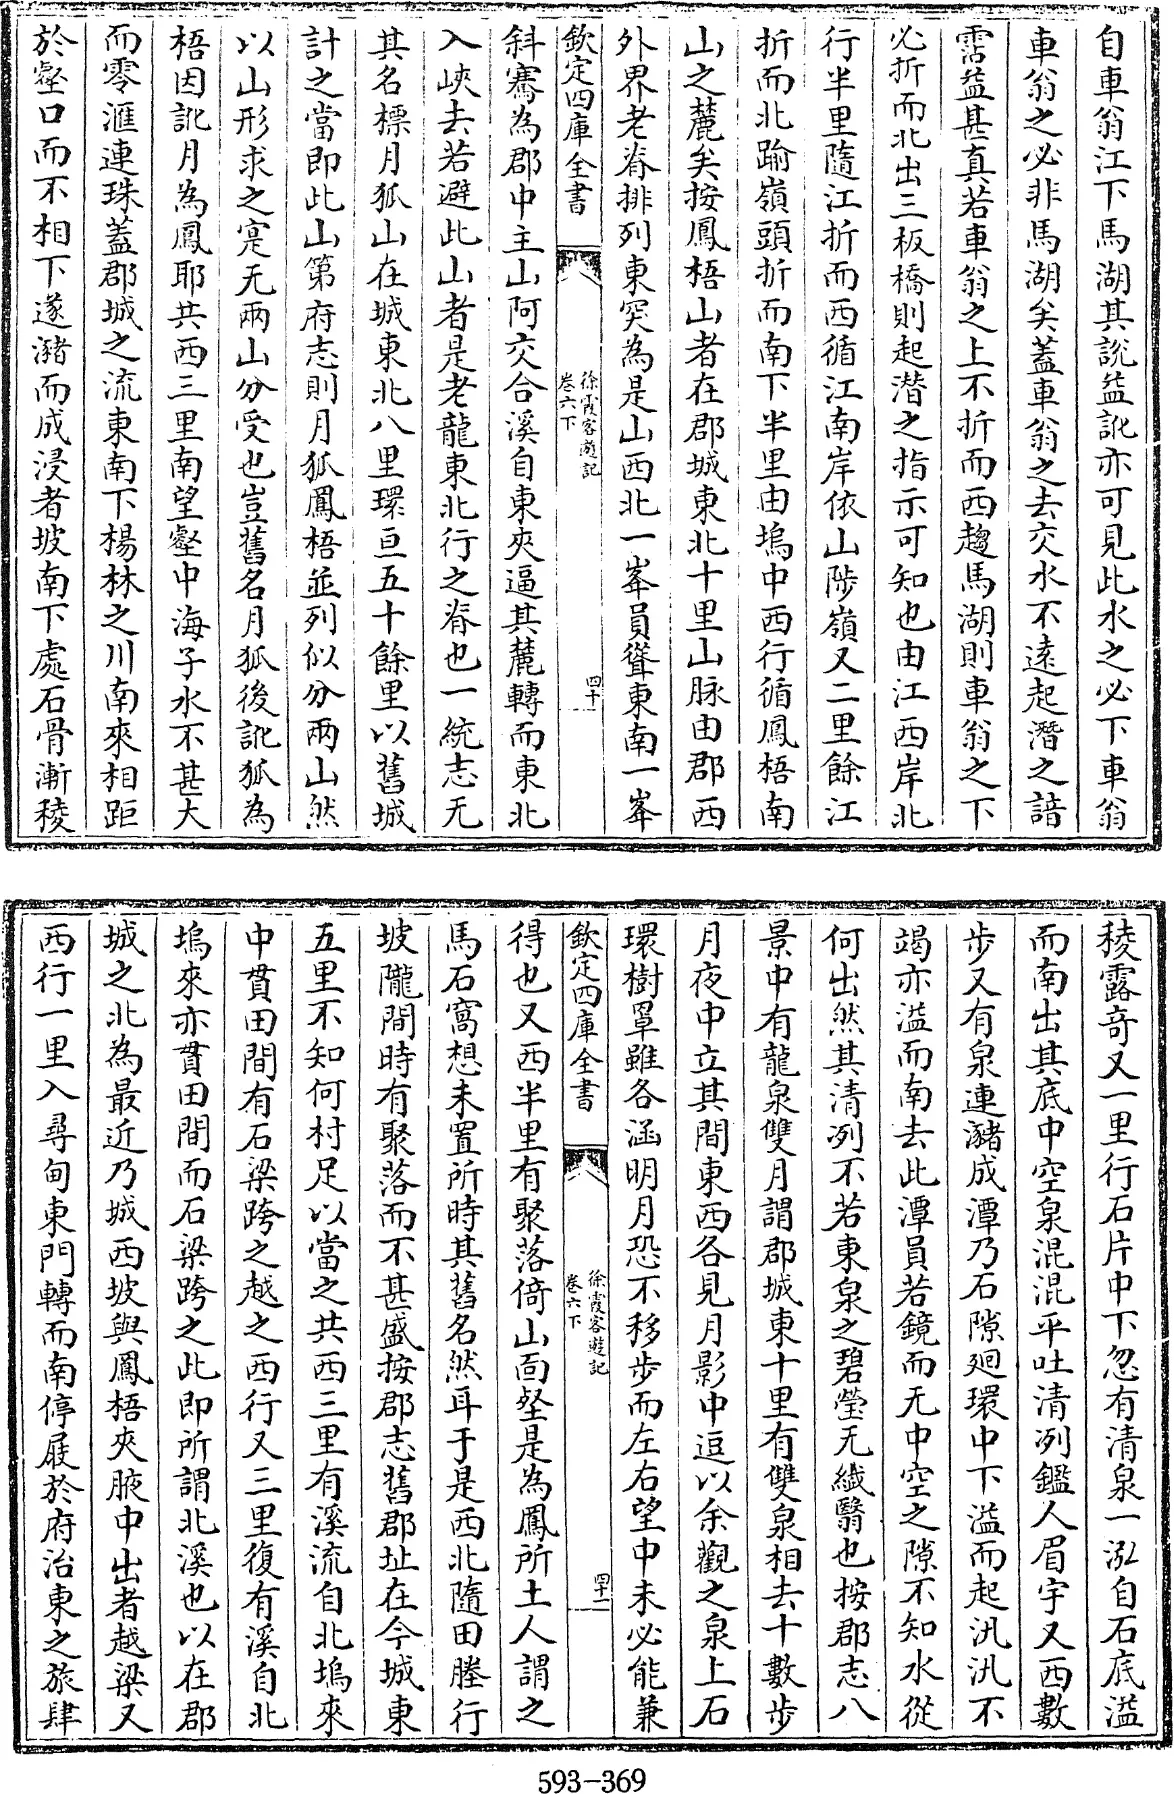 自車翁江下馬湖其說益訛亦可見此水之必下車翁
車翁之必非馬湖矣蓋車翁之去交水不遠起潛之諳
霑益甚真若車翁之上不折而西趨馬湖則車翁之下
必折而北出三板橋則起潛之指示可知也由江西岸北
行半里隨江折而西循江南岸依山陟嶺又二里餘江
折而北踰嶺頭折而南下半里由塢中西行循鳳梧南
山之麓矣按鳳梧山者在郡城東北十里山脉由郡西
外界老脊排列東突為是山西北一峯員聳東南一峯
欽定四庫全書
徐霞客遊記
卷六下
四十
斜騫為郡中主山阿交合溪自東夾逼其麓轉而東北
入峽去若避此山者是老龍東北行之脊也一統志无
其名標月狐山在城東北八里環亘五十餘里以舊城
計之當即此山第府志則月狐鳳梧並列似分兩山然
以山形求之寔无兩山分受也豈舊名月狐後訛狐為
梧因訛月為鳳耶共西三里南望壑中海子水不甚大
而零滙連珠蓋郡城之流東南下楊林之川南來相距
於壑口而不相下遂瀦而成浸者坡南下處石骨漸稜
稜露奇又一里行石片中下忽有清泉一泓自石底溢
而南出其底中空泉混混平吐清冽鑑人眉宇又西數
步又有泉連瀦成潭乃石隙廻環中下溢而起汎汎不
竭亦溢而南去此潭員若鏡而无中空之隙不知水從
何出然其清冽不若東泉之碧瑩无纎翳也按郡志八
景中有龍泉雙月謂郡城東十里有雙泉相去十數步
月夜中立其間東西各見月影中逗以余觀之泉上石
環樹罩雖各涵明月恐不移步而左右望中未必能兼
欽定四庫全書
徐霞客遊記
卷六下
四十一
得也又西半里有聚落倚山靣壑是為鳳所土人謂之
馬石窩想未置所時其舊名然耳于是西北隨田塍行
坡隴間時有聚落而不甚盛按郡志舊郡址在今城東
五里不知何村足以當之共西三里有溪流自北塢來
中貫田間有石梁跨之越之西行又三里復有溪自北
塢來亦貫田間而石梁跨之此即所謂北溪也以在郡
城之北為最近乃城西坡與鳳梧夾腋中出者越梁又
西行一里入尋甸東門轉而南停屐於府治東之旅肆
593-369